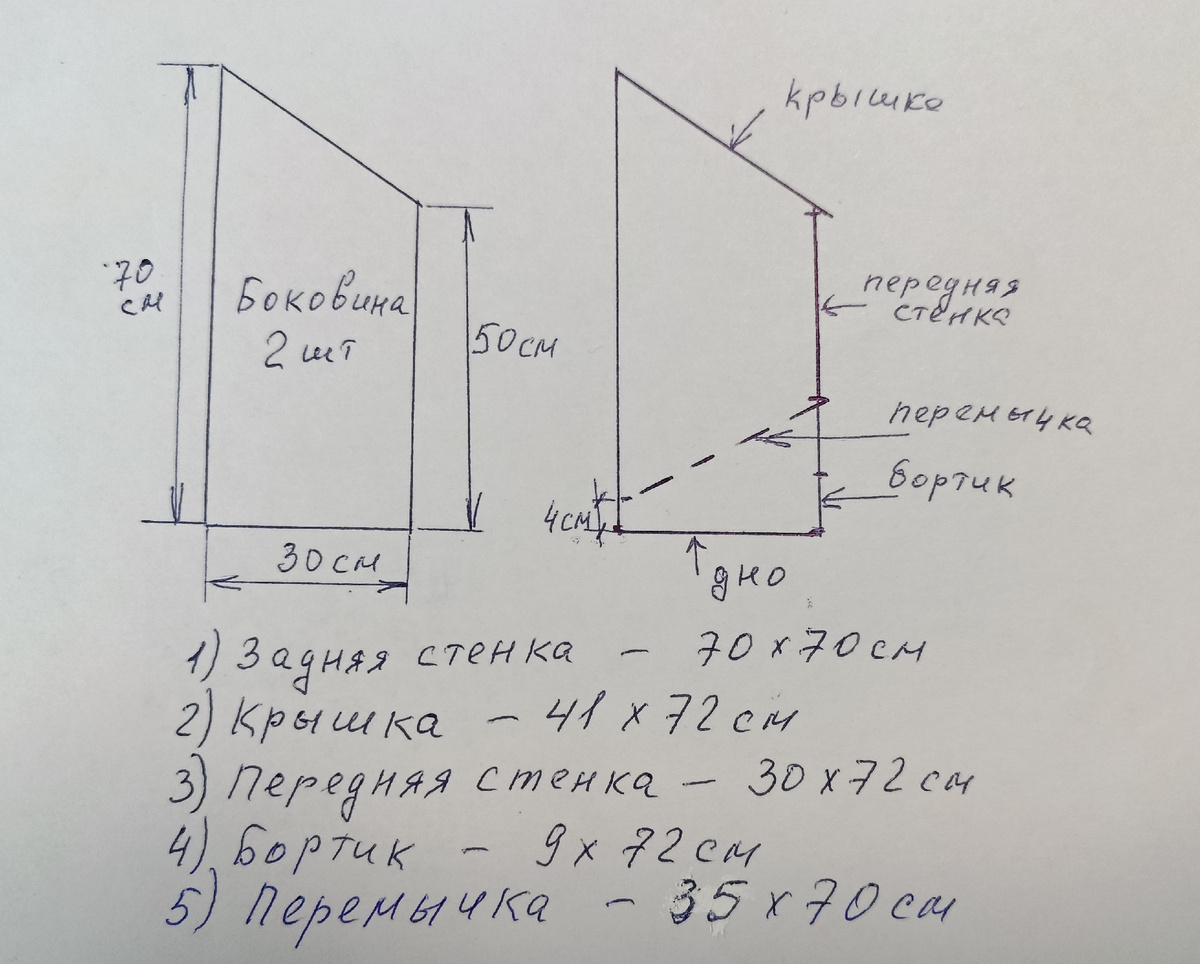 крышка
70
см
Боковина
2 шт
50см
передняя
стенка
перемычка
бортик
4см
30см
дно
1) Задняя стенка – 70 х 70 см
2) Крышка – 41 х 72 см
3) Передняя стенка – 30 х 72 см
4) Бортик – 9 х 72 см
5) Перемычка – 35 х 70 см